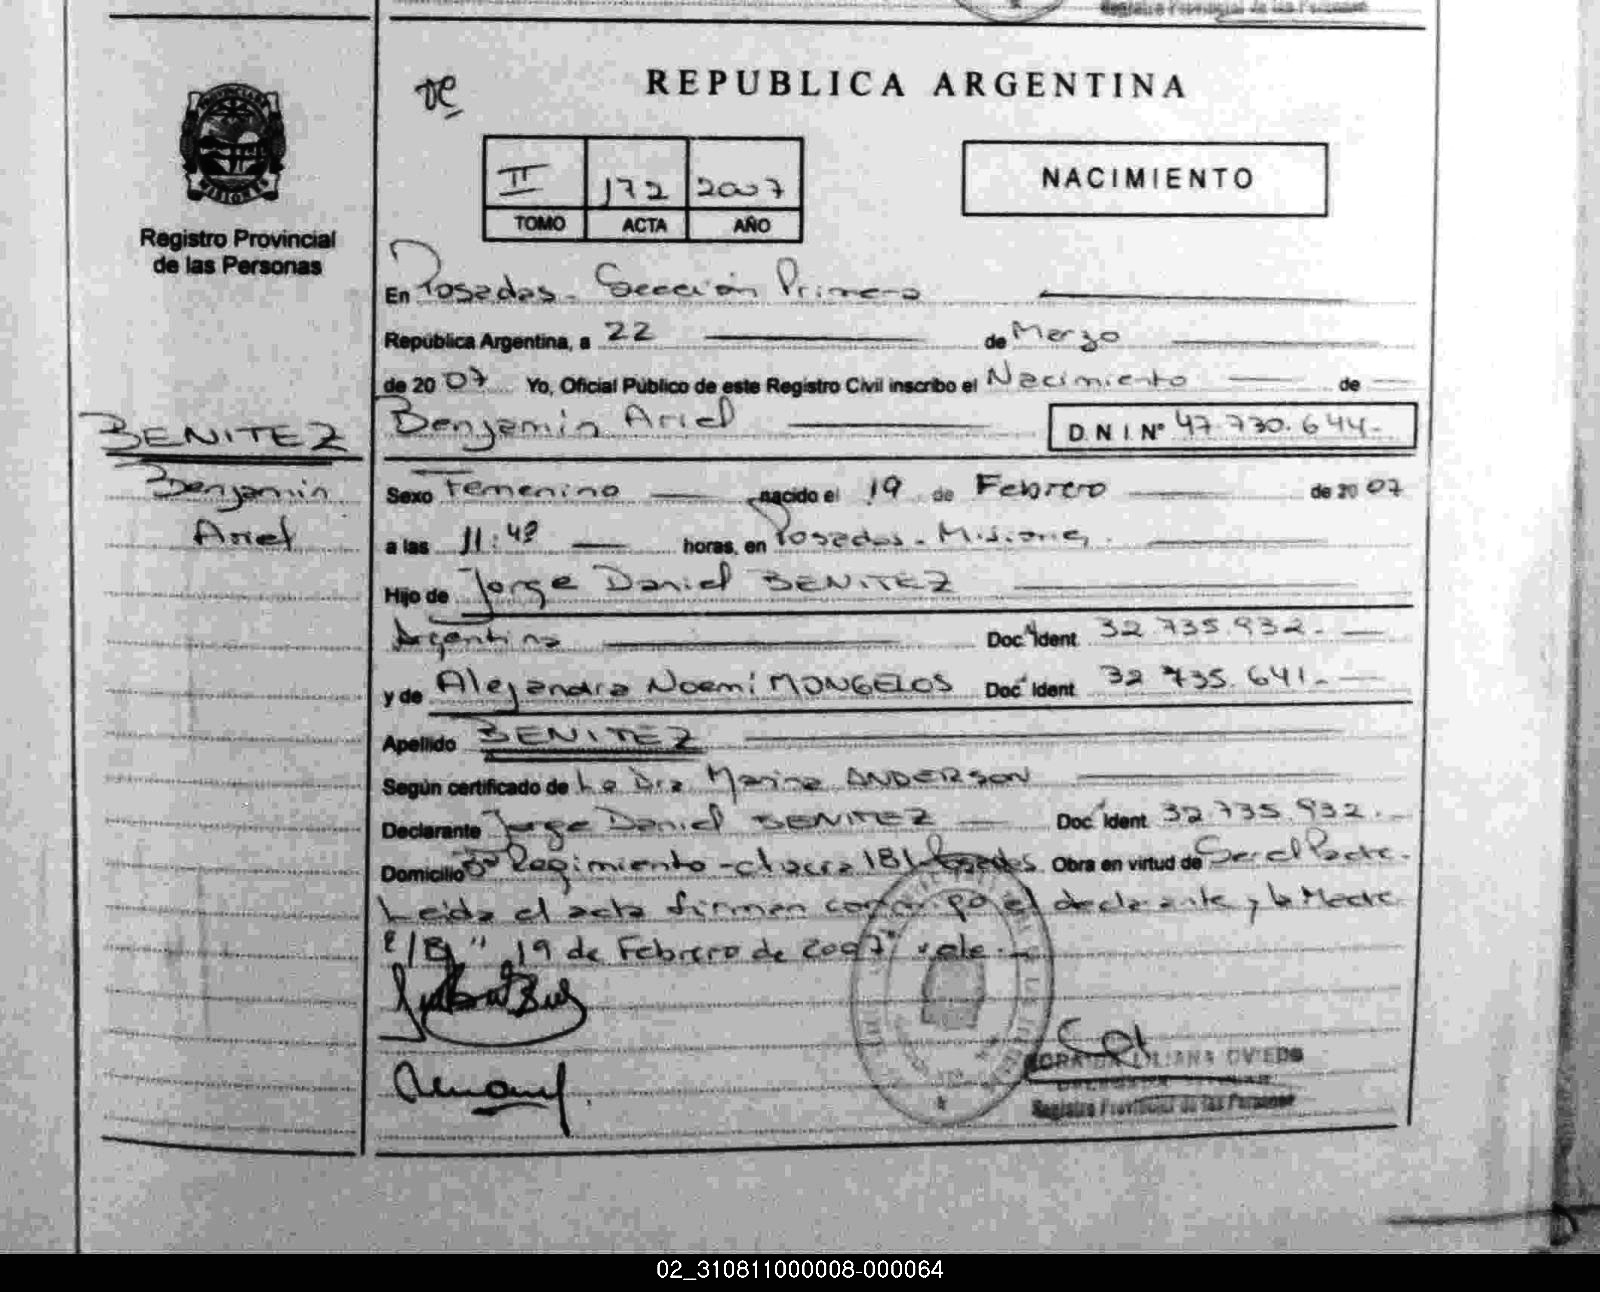 Registro Provincial de las Personas
REPUBLICA ARGENTINA
PROVINCIA DE
MISIONES
Registro Provincial
de las Personas
II 172 2007
TOMO ACTA AÑO
NACIMIENTO
En Posadas - Sección Primera
República Argentina, a 22 de Marzo
de 2007 Yo, Oficial Público de este Registro Civil inscribo el Nacimiento de
BENITEZ
Benjamín Ariel
Benjamín Ariel D.N.I. Nº 47.730.644-
Sexo Femenino nacido el 19 de Febrero de 2007
a las 11:48 horas, en Posadas - Misiones.
Hijo de Jorge Daniel BENITEZ
Argentina Doc. Ident. 32.735.932.-
y de Alejandra Noemí MONGELOS Doc. Ident. 32.735.641.-
Apellido BENITEZ
Según certificado de La Dra Marina ANDERSON
Declarante Jorge Daniel BENITEZ Doc. Ident. 32.735.932.-
Domicilio Regimiento - chacra 181 - Posadas. Obra en virtud de Ser el Padre.
Leída el acta firman conmigo el declarante y la Madre
19 de Febrero de 2007" vale.-
LILIANA OVIEDO
Registro Provincial de las Personas
02_310811000008-000064